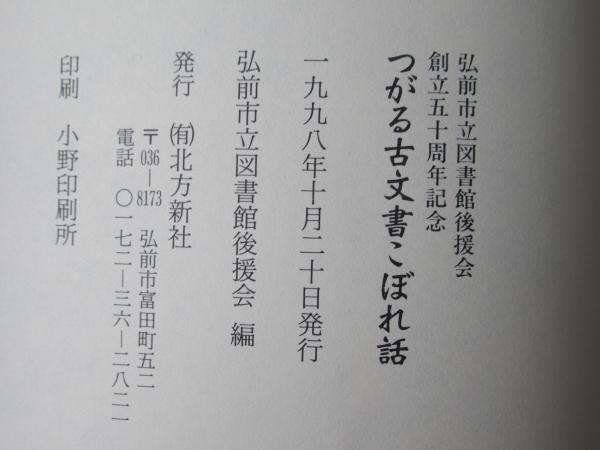 弘前市立図書館後援会
創立五十周年記念
つがる古文書こぼれ話
一九九八年十月二十日発行
弘前市立図書館後援会 編
発行 ㈲北方新社
〒036―8173 弘前市富田町五二
電話 〇一七二―三六―二八二一
印刷 小野印刷所